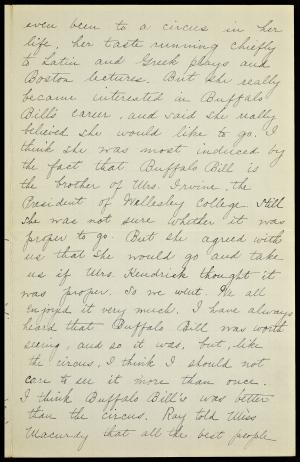 even been to a circus in her
life, her taste running chiefly
to Latin and Greek plays and
Boston lectures. But she really
became interested in Buffalo
Bill's career, and said she really
believed she would like to go. I
think she was most induced by
the fact that Buffalo Bill is
the brother of Mrs. Irvine, the
President of Wellesley College. Still
she was not sure whether it was
proper to go. But she agreed with
us that she would go and take
us if Mrs. Kendrick thought it
was proper. So we went. We all
enjoyed it very much. I have always
heard that Buffalo Bill was worth
seeing, and so it was, but, like
the circus, I think I should not
care to see it more than once.
I think Buffalo Bill's was better
than the circus. Ray told Miss
Macurdy that all the best people